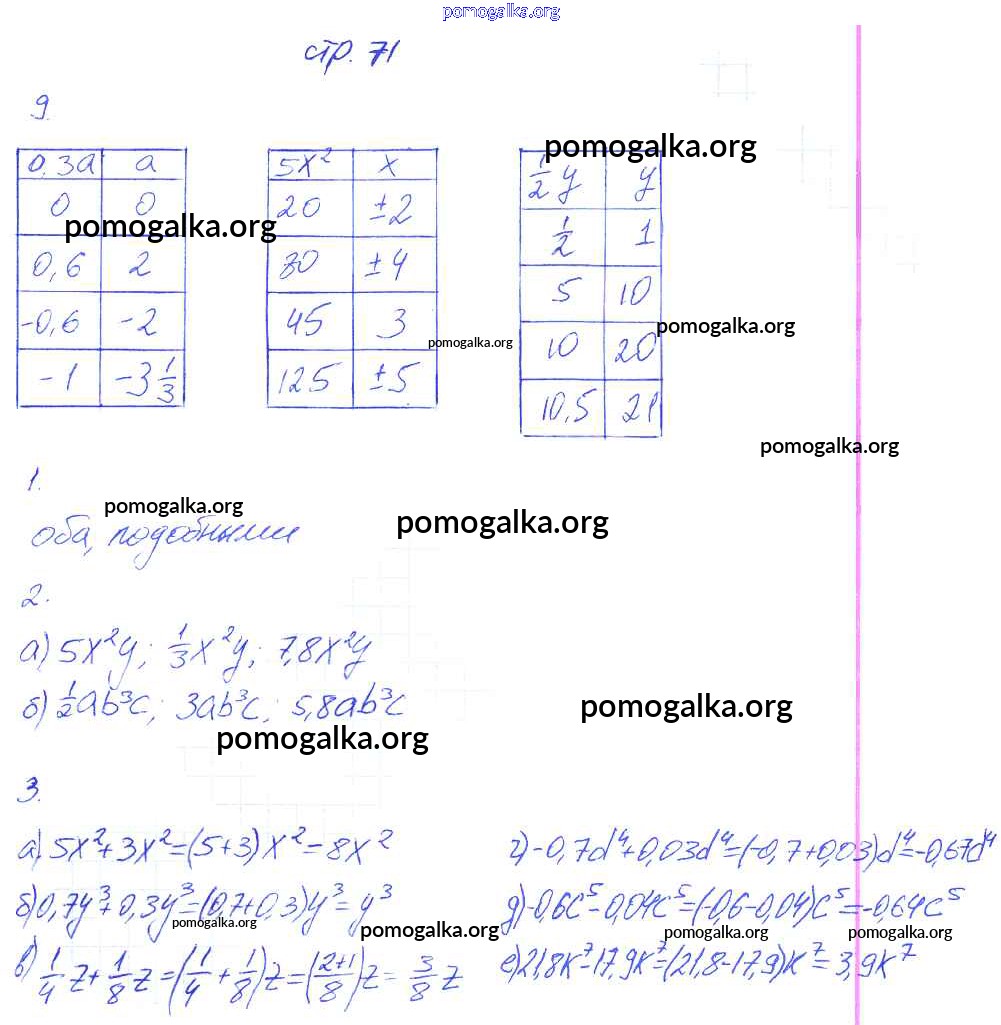 pomogalka.org
стр. 71
9
0,3a a
0 0
0,6 2
-0,6 -2
-1 -3 1/3
5x² x
20 ±2
80 ±4
45 3
125 ±5
1/2 y y
1/2 1
5 10
10 20
10,5 21
pomogalka.org
pomogalka.org
pomogalka.org
pomogalka.org
pomogalka.org
1.
pomogalka.org
pomogalka.org
оба, подобными
2.
а) 5x²y; 1/3 x²y; 7,8x²y
б) 1/2 ab³c; 3ab³c; 5,8ab³c
pomogalka.org
pomogalka.org
3.
а) 5x²+3x²=(5+3)x²=8x²
б) 0,7y³+0,3y³=(0,7+0,3)y³=y³
в) 1/4 z+1/8 z=(1/4+1/8)z=((2+1)/8)z=3/8 z
г) -0,7d⁴+0,03d⁴=(-0,7+0,03)d⁴=-0,67d⁴
д) -0,6c⁵-0,04c⁵=(-0,6-0,04)c⁵=-0,64c⁵
е) 21,8k⁷-17,9k⁷=(21,8-17,9)k⁷=3,9k⁷
pomogalka.org
pomogalka.org
pomogalka.org
pomogalka.org